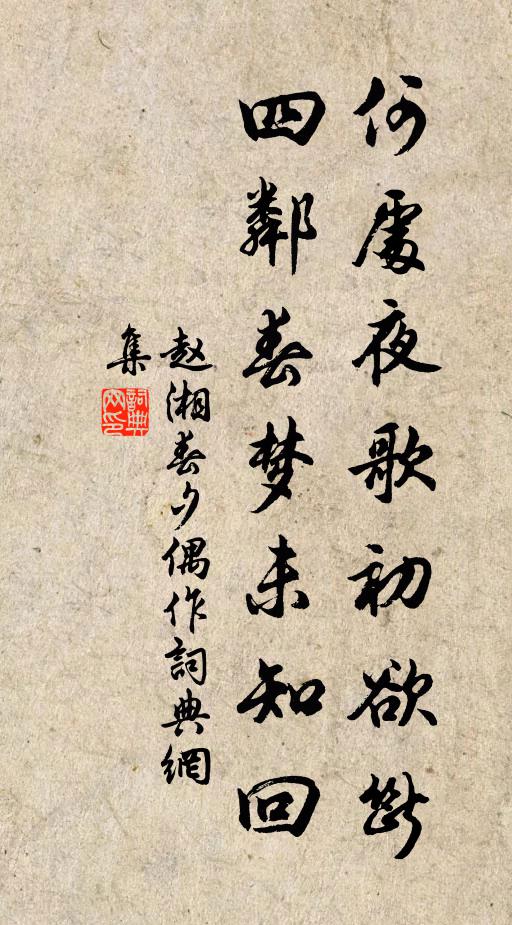 何處夜歌初欲斷
四鄰春梦未知回
赵湘春夕偶作詞典網
集
詞典網印